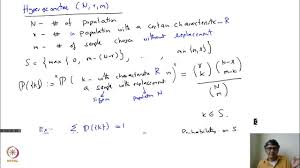 Hypergeometric (N, r, m)
N - # of population
r - # in population with a certain characteristic - R
m - # of sample chosen without replacement
S = { max{0, m-(N-r)}, ... , min
P({k}) = P( k - with characteristic R in a sample with replacement ) = \binom{r}{k} \binom{N-r}{m-k} / \binom{N}{m}
size m
population N
k ∈ S.
Ex:- Σ P({k}) = 1
Probability on S
NPTEL